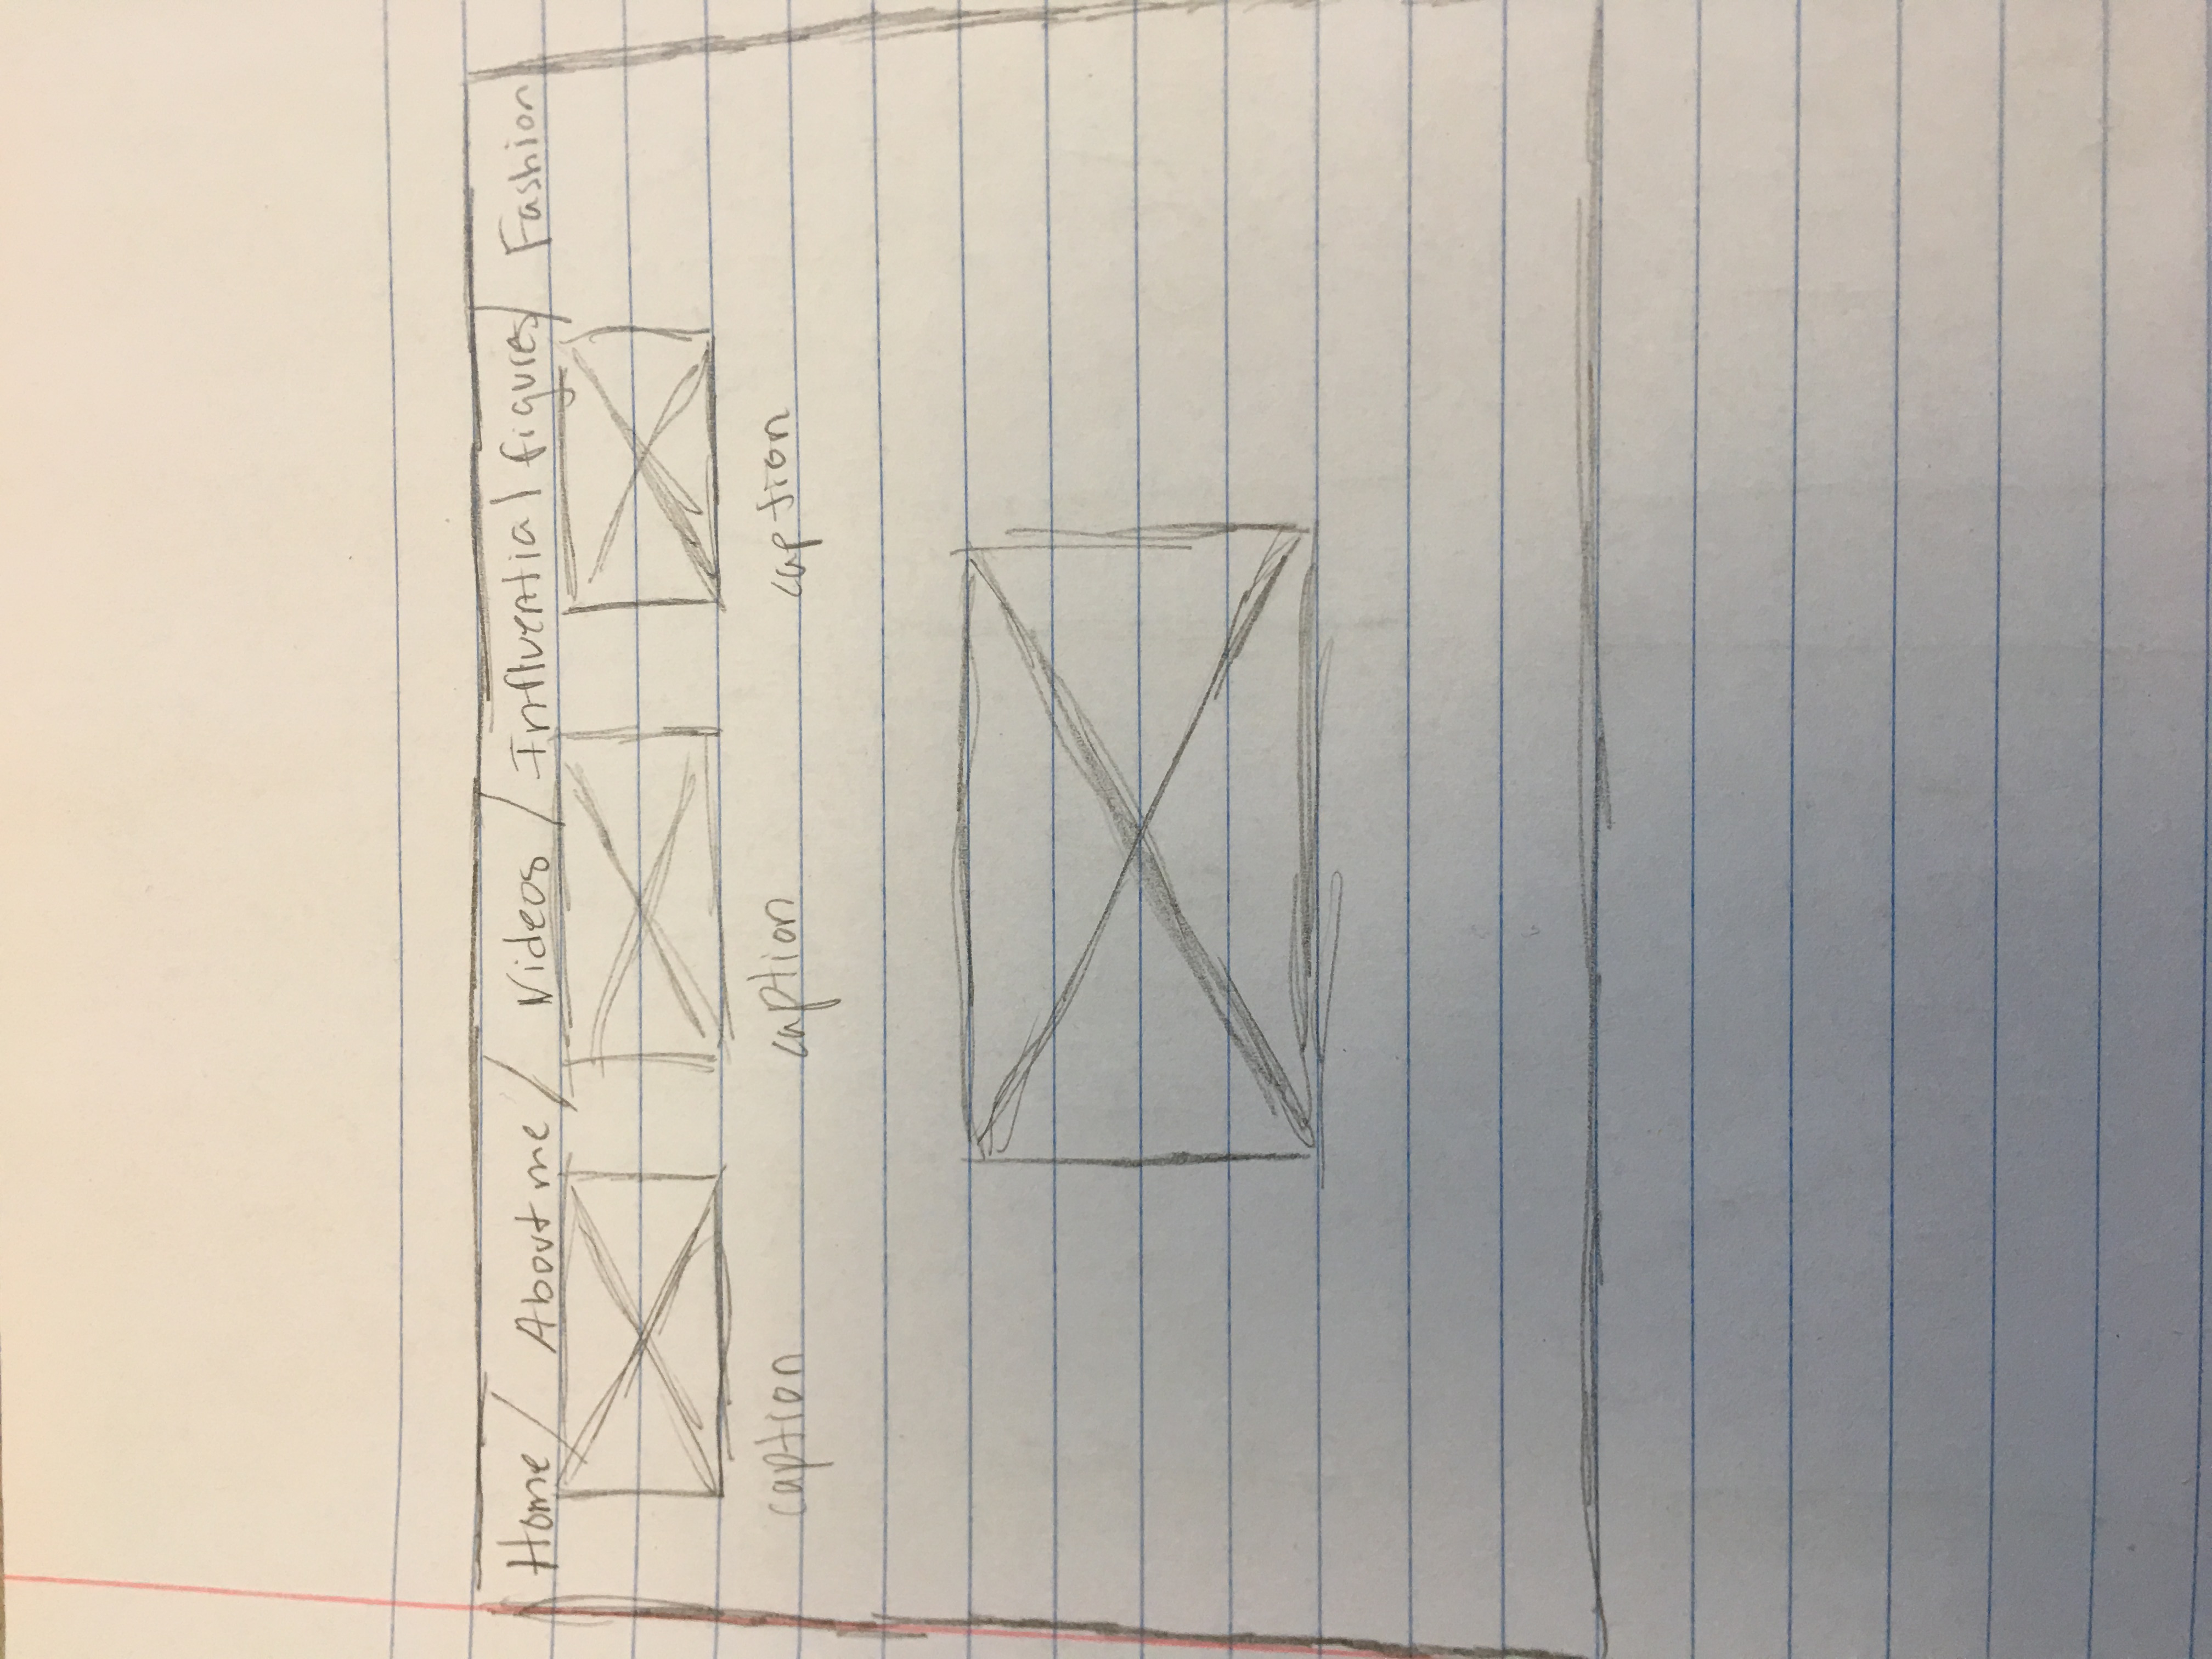 Home / About me / Videos / Influential figures / Fashion
caption caption caption